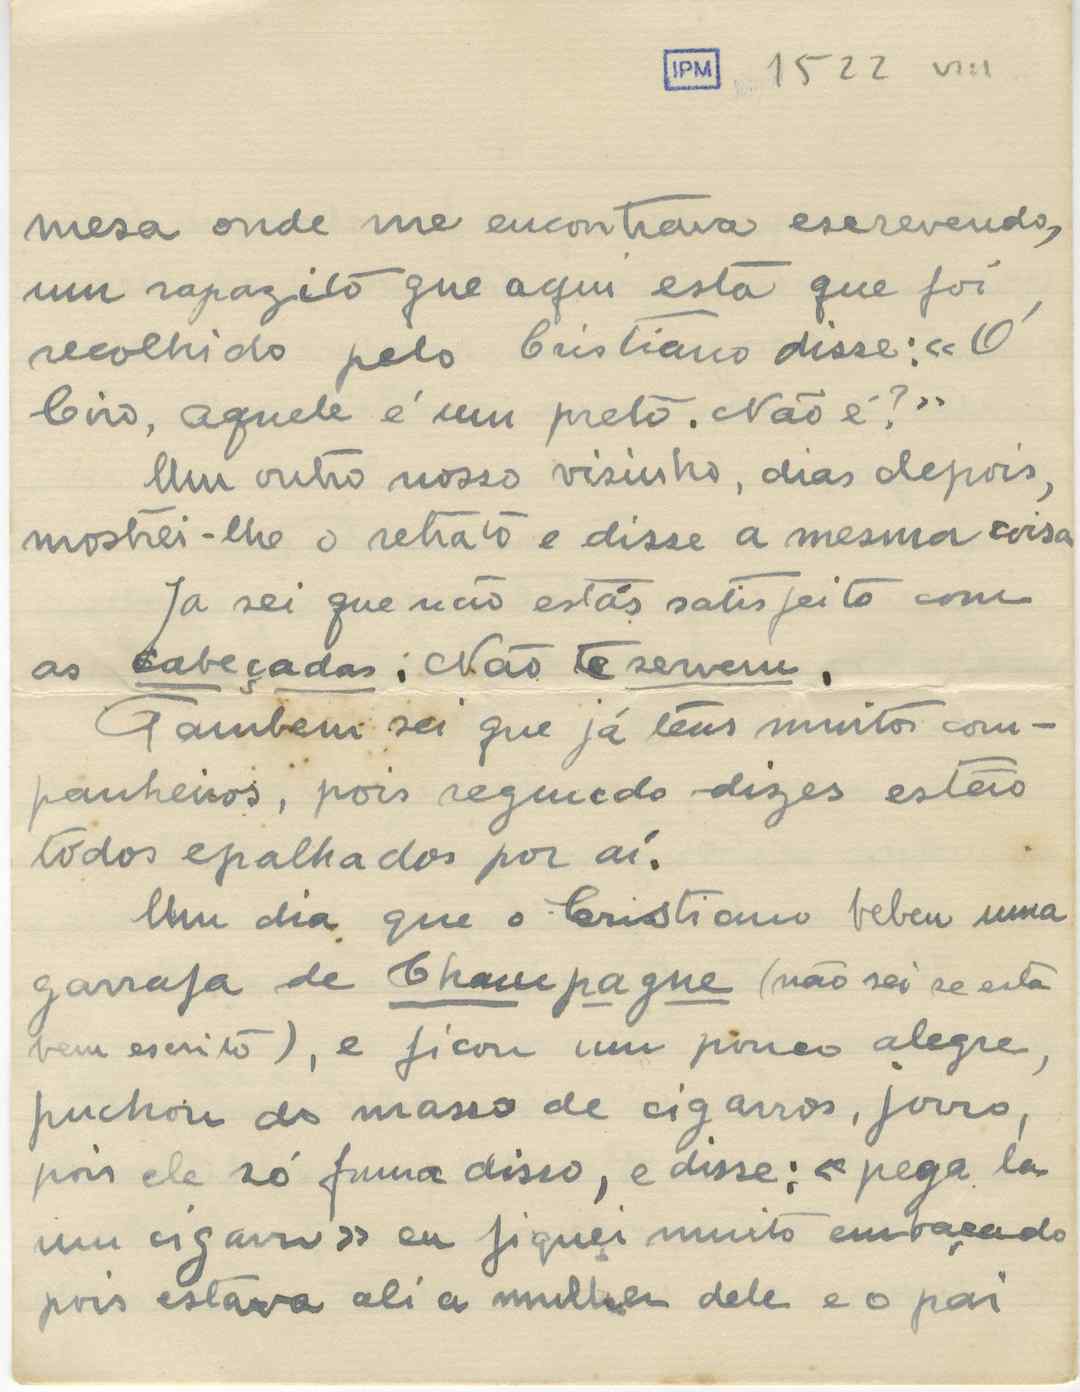 IPM 1522 VIII
mesa onde me encontrava escrevendo,
um rapazito que aqui está que foi
recolhido pelo Cristiano disse: «Ó
Ciro, aquele é um preto. Não é?»
Um outro nosso visinho, dias depois,
mostrei-lhe o retrato e disse a mesma coisa
Ja sei que não estás satisfeito com
as cabeçadas; Não te servem.
Tambem sei que já tens muitos com-
panheiros, pois segundo dizes estão
todos epalhados por aí.
Um dia que o Cristiano bebeu uma
garrafa de Champagne (não sei se está
bem escrito), e ficou um pouco alegre,
puchou do masso de cigarros, jorro,
pois ele só fuma disso, e disse: «pega la
um cigarro» eu fiquei muito embaçado
pois estava ali a mulher dele e o pai